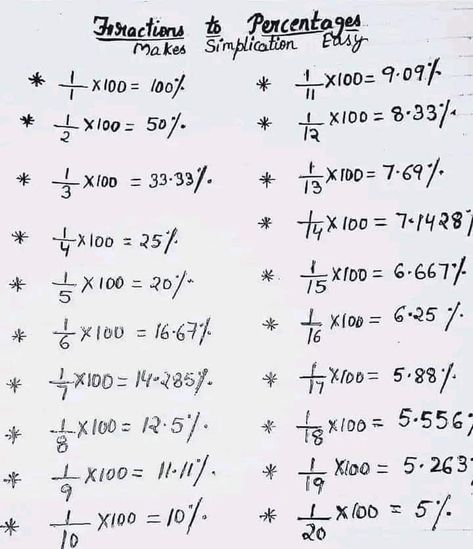 Fractions to Percentages
Makes Simplication Easy
* 1/1 ×100 = 100%
* 1/2 ×100 = 50%
* 1/3 ×100 = 33.33%
* 1/4 ×100 = 25%
* 1/5 ×100 = 20%
* 1/6 ×100 = 16.67%
* 1/7 ×100 = 14.285%
* 1/8 ×100 = 12.5%
* 1/9 ×100 = 11.11%
* 1/10 ×100 = 10%
* 1/11 ×100 = 9.09%
* 1/12 ×100 = 8.33%
* 1/13 ×100 = 7.69%
* 1/14 ×100 = 7.1428%
* 1/15 ×100 = 6.667%
* 1/16 ×100 = 6.25%
* 1/17 ×100 = 5.88%
* 1/18 ×100 = 5.556%
* 1/19 ×100 = 5.263
* 1/20 ×100 = 5%